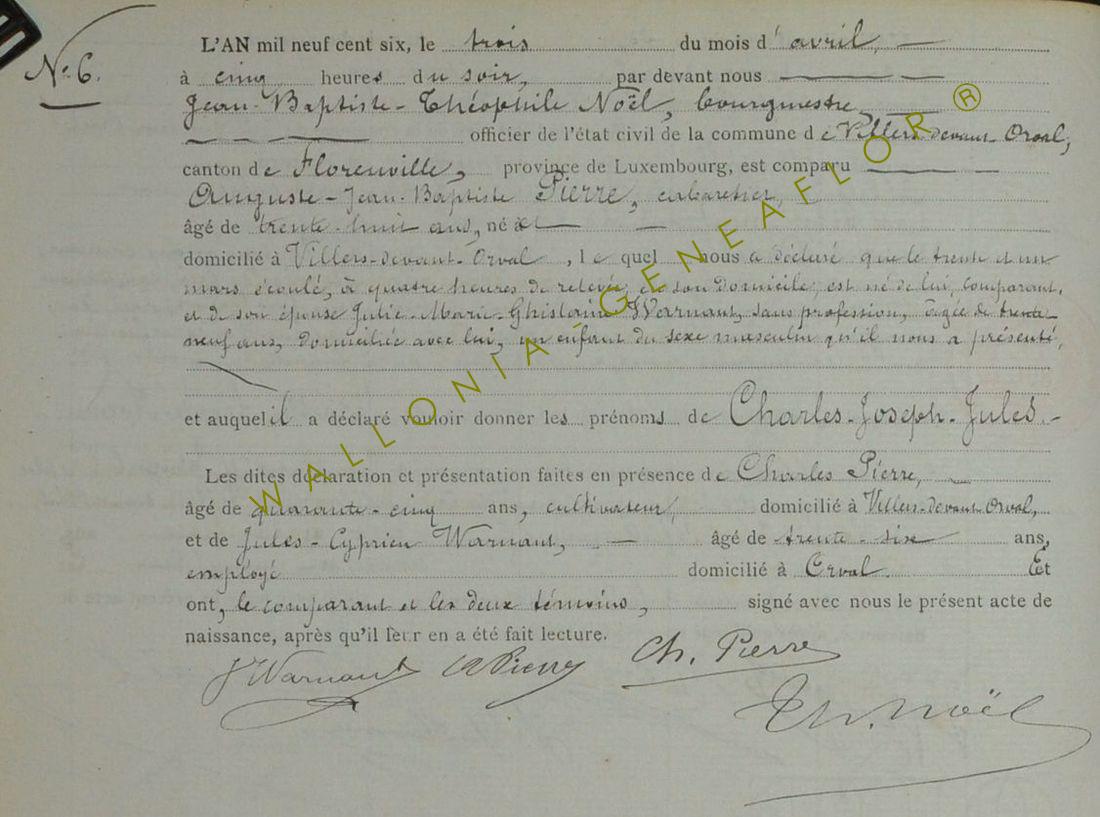 N° 6.
L'AN mil neuf cent six, le trois du mois d'avril,
à cinq heures du soir, par devant nous
Jean-Baptiste-Théophile Noël, bourgmestre,
officier de l'état civil de la commune de Villers-devant-Orval,
canton de Florenville, province de Luxembourg, est comparu
Auguste-Jean-Baptiste Pierre, cabaretier,
âgé de trente-huit ans, né
domicilié à Villers-devant-Orval, lequel nous a déclaré que le trente et un
mars écoulé, à quatre heures de relevée, en son domicile, est né de lui, comparant,
et de son épouse Julie-Marie-Ghislaine Warnant, sans profession, âgée de trente
neuf ans, domiciliée avec lui, un enfant du sexe masculin qu'il nous a présenté,
et auquel il a déclaré vouloir donner les prénoms de Charles-Joseph-Jules.
Les dites déclaration et présentation faites en présence de Charles Pierre,
âgé de quarante-cinq ans, cultivateur, domicilié à Villers-devant-Orval,
et de Jules-Cyprien Warnant, âgé de trente-six ans,
employé domicilié à Orval. Et
ont, le comparant et les deux témoins, signé avec nous le présent acte de
naissance, après qu'il leur en a été fait lecture.
J Warnant A Pierre Ch. Pierre
Th. Noël
WALLONIA-GENEAFLOR ®